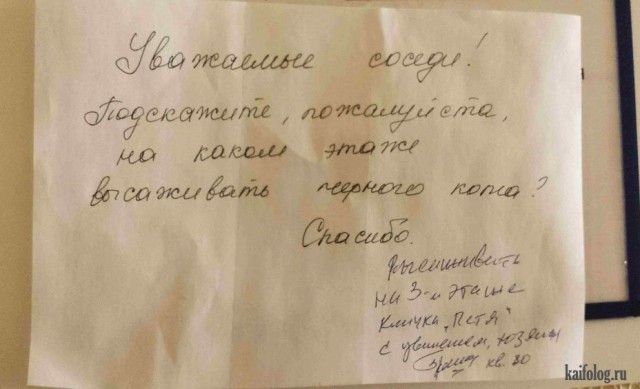 Уважаемые соседи!
Подскажите, пожалуйста,
на каком этаже
высаживать черного кота?
Спасибо.
Высаживать
на 3-м этаже
кличка "Петя"
с уважением, хозяин
кв. 80
kaifolog.ru